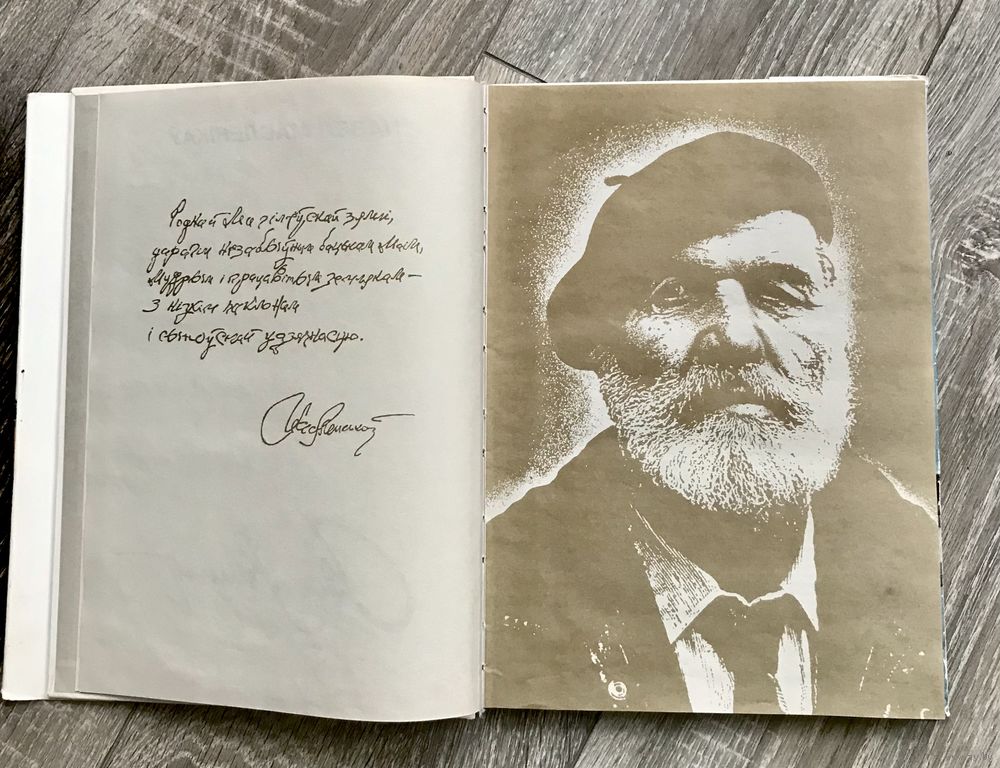 Роднай Магілёўскай зямлі,
дарагім незабыўным бацькам маім,
мудрым і працавітым землякам —
З нізкім паклонам
і сыноўскай удзячнасцю.